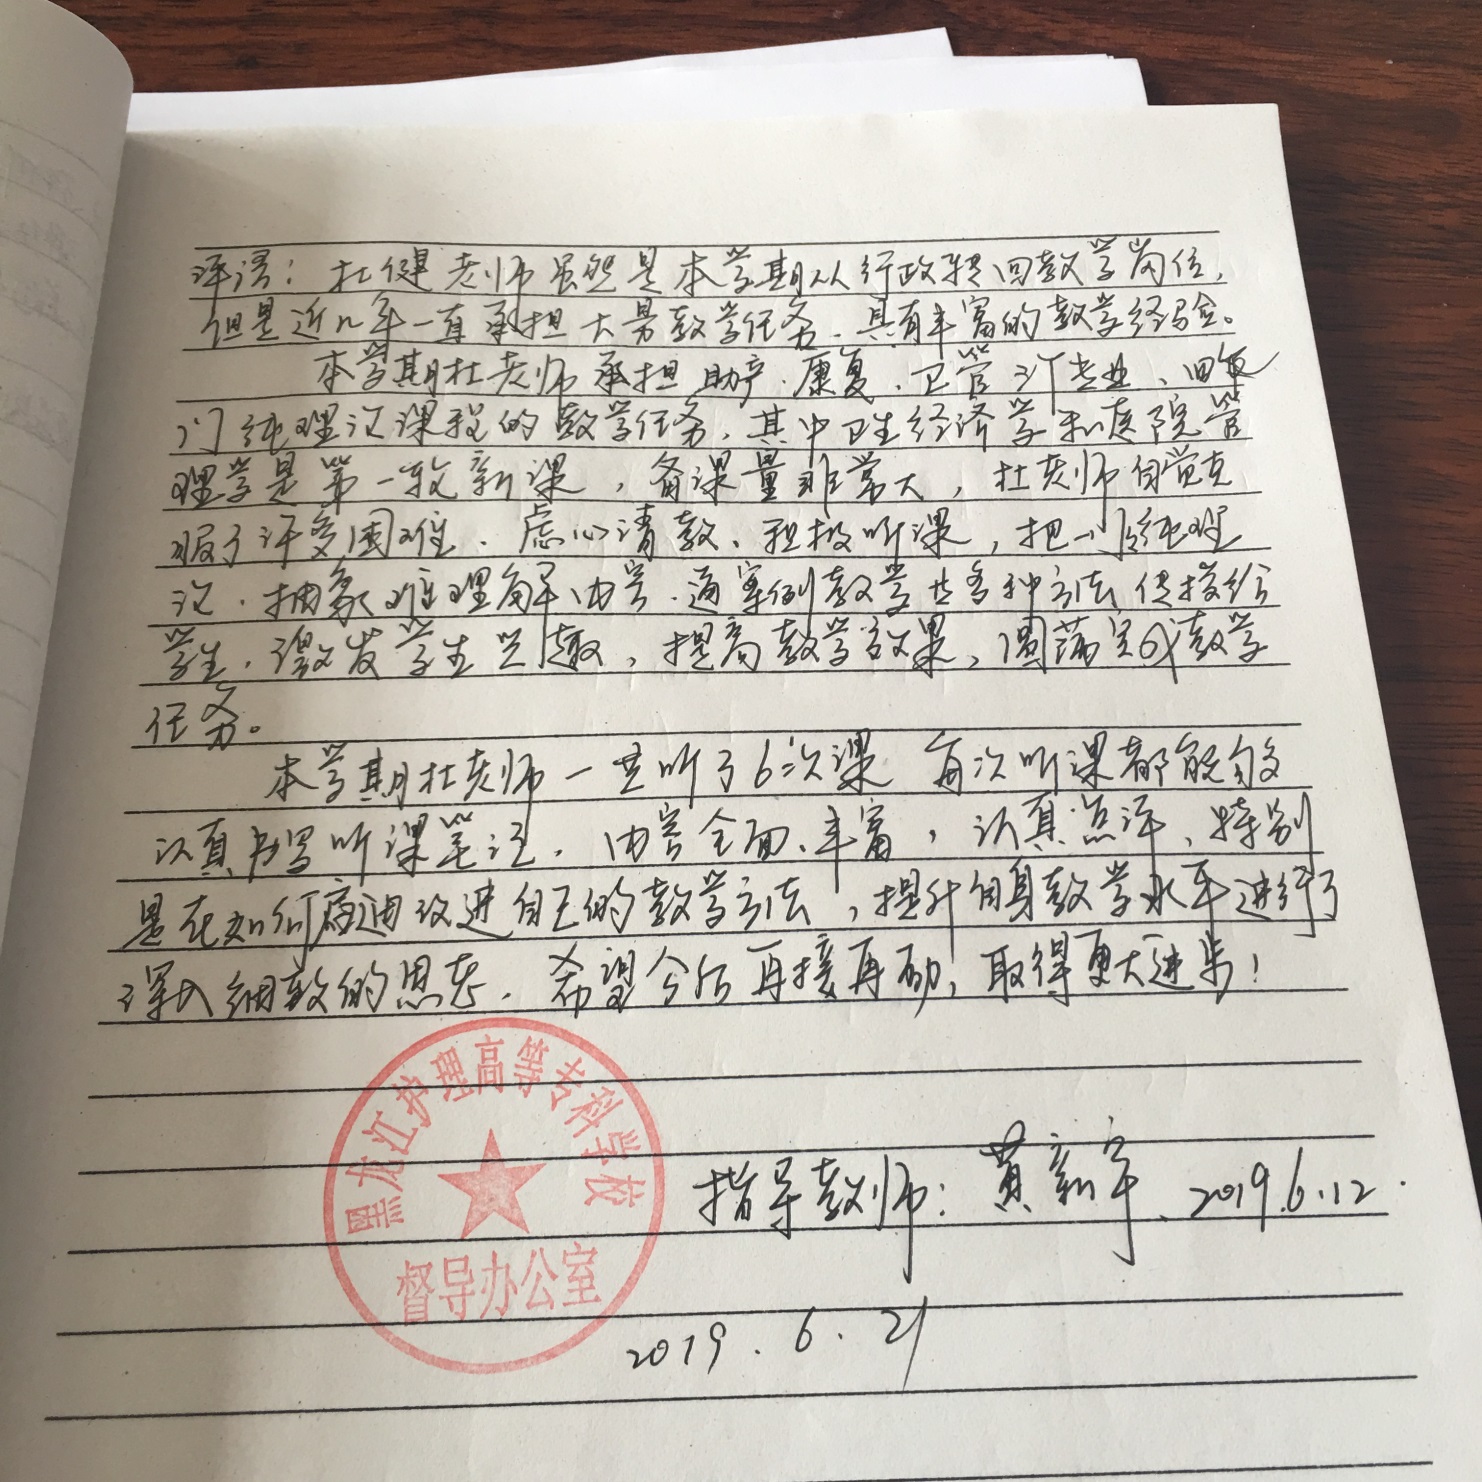 评语：杜健老师虽然是本学期从行政转回教学岗位，
但是近几年一直承担大量教学任务，具有丰富的教学经验。
本学期杜老师承担助产、康复、卫管三个专业、四
门纯理论课程的教学任务，其中卫生经济学和医院管
理学是第一轮新课，备课量非常大，杜老师自觉克
服了许多困难、虚心请教、积极听课，把一门纯理
论、抽象难理解内容，通案例教学等多种方法传授给
学生，激发学生兴趣，提高教学效果，圆满完成教学
任务。
本学期杜老师一共听了6次课 每次听课都能够
认真书写听课笔记，内容全面、丰富，认真点评、特别
是在如何应迪改进自己的教学方法，提升自身教学水平进行了
深入细致的思考，希望今后再接再励，取得更大进步！
黑龙江护理高等专科学校
督导办公室
指导教师：黄新宇 2019.6.12.
2019.6.21